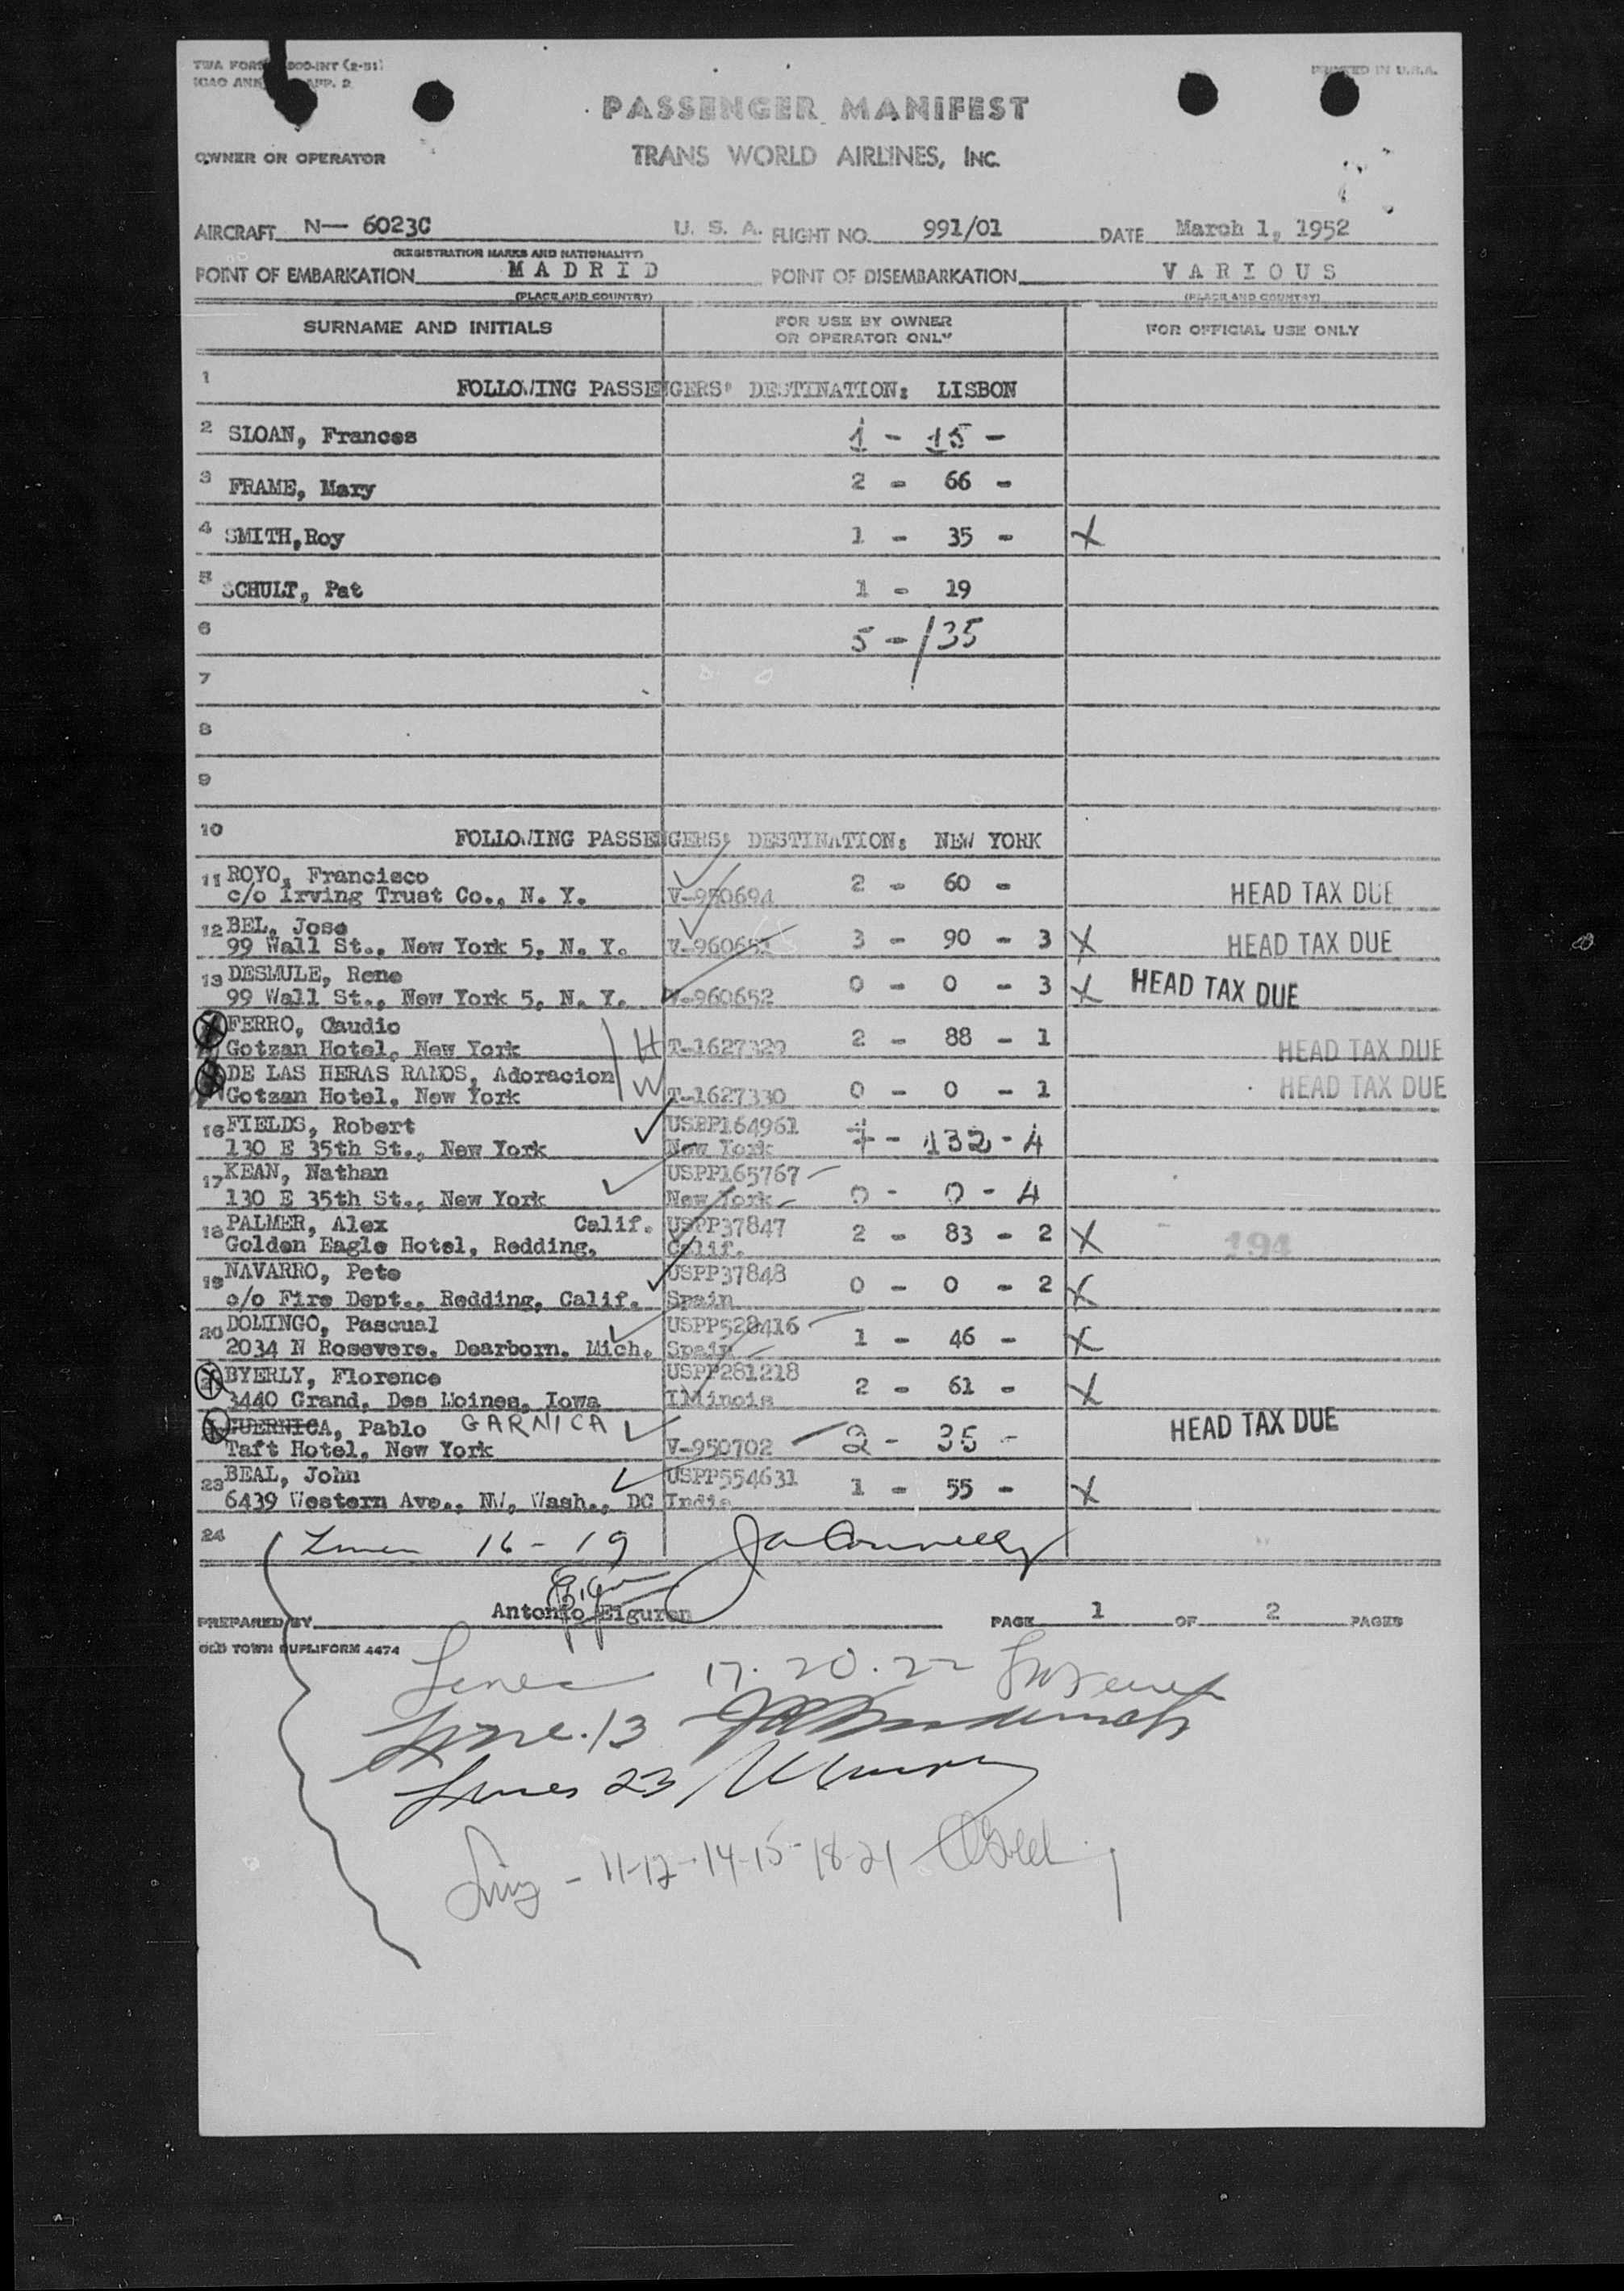 PRINTED IN U.S.A.
PASSENGER MANIFEST
OWNER OR OPERATOR TRANS WORLD AIRLINES, INC.
AIRCRAFT N— 6023C U. S. A. FLIGHT NO. 991/01 DATE March 1, 1952
(REGISTRATION MARKS AND NATIONALITY)
POINT OF EMBARKATION MADRID POINT OF DISEMBARKATION VARIOUS
(PLACE AND COUNTRY) (PLACE AND COUNTRY)
SURNAME AND INITIALS FOR USE BY OWNER OR OPERATOR ONLY FOR OFFICIAL USE ONLY
1 FOLLOWING PASSENGERS' DESTINATION: LISBON
2 SLOAN, Frances 1 - 15 -
3 FRAME, Mary 2 - 66 -
4 SMITH,Roy 1 - 35 - X
5 SCHULT, Pat 1 - 19
6 5 - 135
7
8
9
10 FOLLOWING PASSENGERS' DESTINATION: NEW YORK
11 ROYO, Francisco 2 - 60 -
c/o Irving Trust Co., N. Y. V-950694 HEAD TAX DUE
12 BEL, Jose 3 - 90 - 3 X HEAD TAX DUE
99 Wall St., New York 5, N. Y. V-960651
13 DESMULE, Rene 0 - 0 - 3 X HEAD TAX DUE
99 Wall St., New York 5, N. Y. V-960652
FERRO, Caudio 2 - 88 - 1
Gotzan Hotel, New York H T-1627329 HEAD TAX DUE
DE LAS HERAS RAMOS, Adoracion
Gotzan Hotel, New York W T-1627330 0 - 0 - 1 HEAD TAX DUE
16 FIELDS, Robert USPP164961
130 E 35th St., New York New York 132 - 4
17 KEAN, Nathan USPP165767
130 E 35th St., New York New York 0 - 0 - 4
18 PALMER, Alex Calif. USPP37847 2 - 83 - 2 X
Golden Eagle Hotel, Redding, Calif. 194
19 NAVARRO, Pete USPP37848 0 - 0 - 2 X
c/o Fire Dept., Redding, Calif. Spain
20 DOMINGO, Pascual USPP528416 1 - 46 - X
2034 N Rosevere, Dearborn, Mich. Spain
BYERLY, Florence USPP281218 2 - 61 - X
3440 Grand, Des Moines, Iowa Illinois
GUERNICA, Pablo GARNICA HEAD TAX DUE
Taft Hotel, New York V-950702 2 - 35 -
23 BEAL, John USPP554631 1 - 55 - X
6439 Western Ave., NW, Wash., DC India
24 16 - 19
PREPARED BY Antonio Eiguren PAGE 1 OF 2 PAGES
OLD TOWN DUPLIFORM 4474
Lines 17. 20. 22
Line. 13
Lines 23
11-12-14-15-18-21